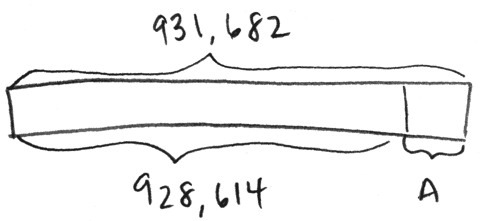 931,682
928,614 A